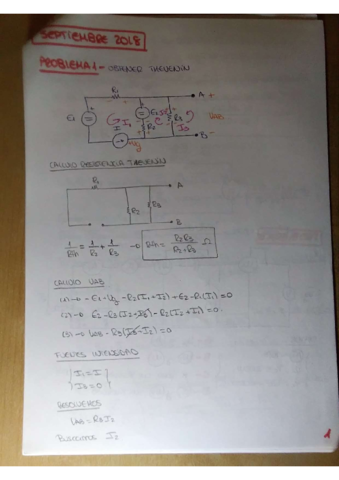 SEPTIEMBRE 2018
PROBLEMA 1 - OBTENER THEVENIN
R1
A +
E1
E2
R3
I1
I
R2
B -
CALCULO RESISTENCIA THEVENIN
R1
A
R2
R3
B
1/Rth = 1/R2 + 1/R3 → Rth = R2R3/(R2+R3) Ω
CALCULO UAB
(1) → -E1 - Ug - R2(I1+I2) + E2 - R1(I1) = 0
(2) → E2 - R3(I2+I3) - R2(I2+I1) = 0
(3) → UAB - R3(I3-I2) = 0
FUENTES INTENSIDAD
I1 = I
I3 = 0
RESOLVEMOS
UAB = R3I2
BUSCAMOS I2
1